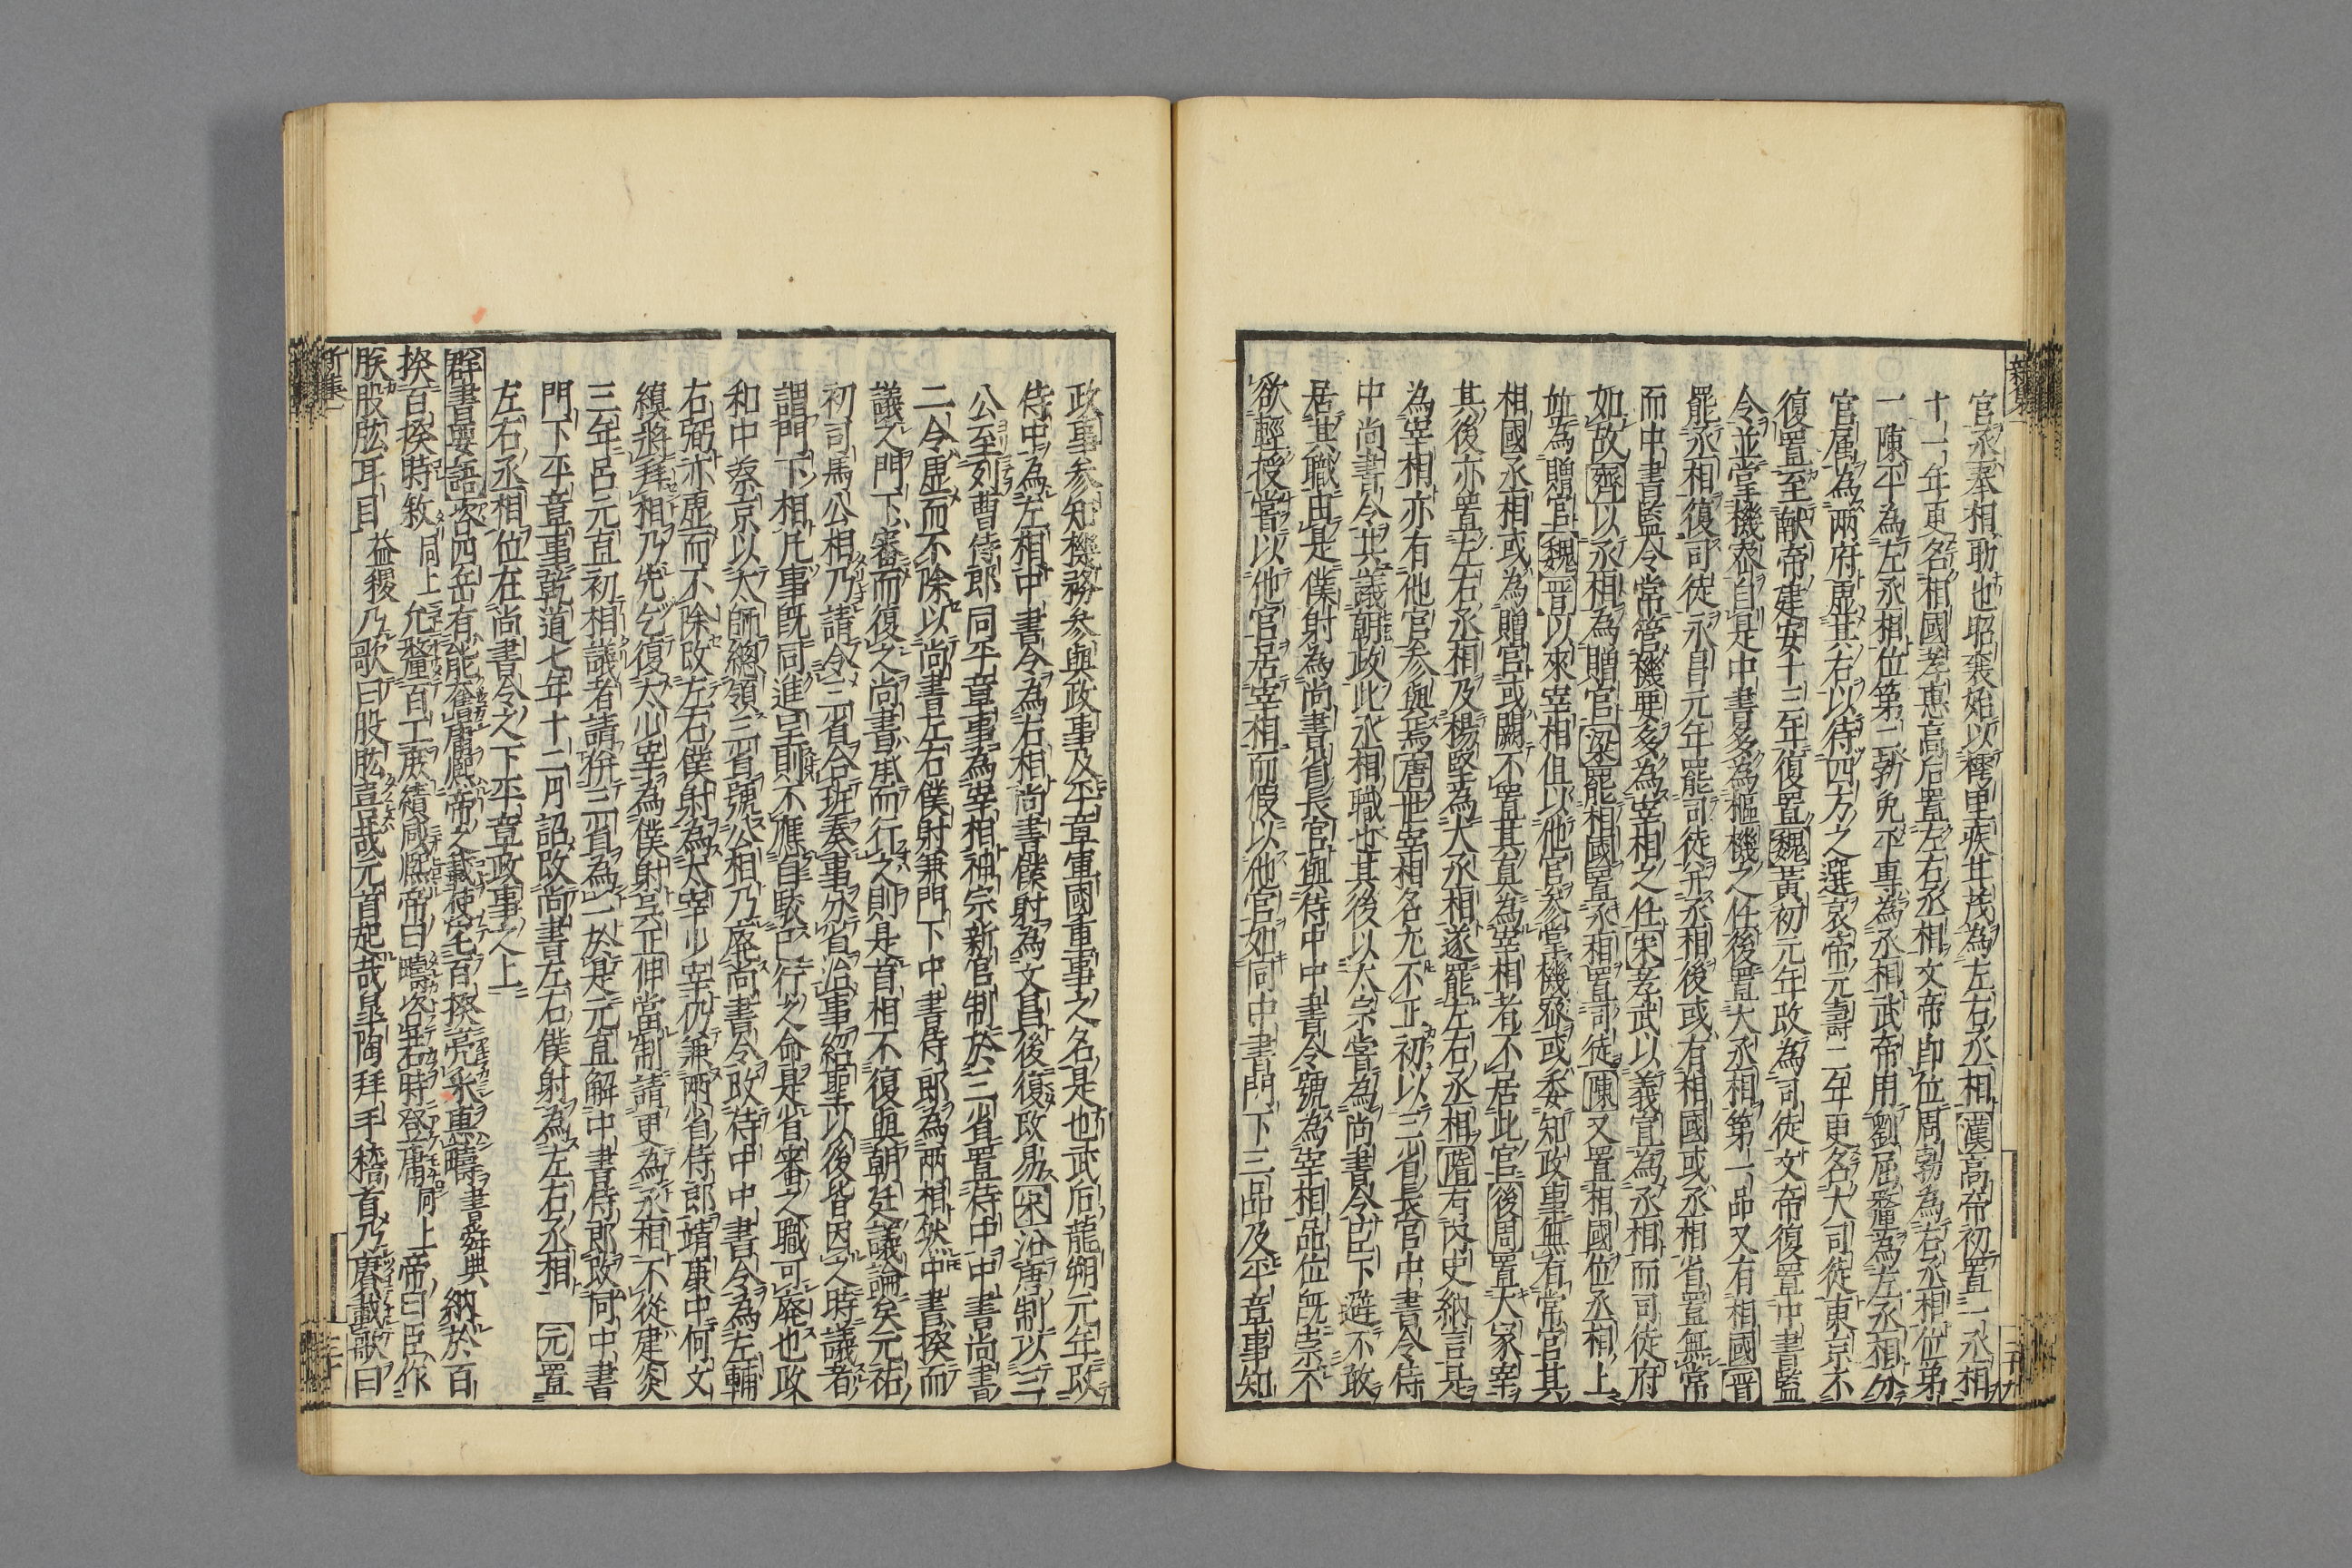 官丞奉相助也昭襄始以樗里疾甘茂為左右丞相漢高帝初置一丞相
十一年更名相國孝惠高后置左右丞相文帝即位周勃為右丞相位第
一陳平為左丞相位第二勃免平專為丞相武帝用劉屈氂為左丞相分
官属為兩府虚其右以待四方之選哀帝元壽二年更名大司徒東京不
復置至献帝建安十三年復置魏黃初元年改為司徒文帝復置中書監
令並掌機密自是中書多為樞機之任後置大丞相第一品又有相國晋
罷丞相復司徒永昌元年罷司徒并丞相後或有相國或丞相省置無常
而中書監令常管機要多為宰相之任宋孝武以義宣為丞相而司徒府
如故齊以丞相為贈官梁罷相國置丞相置司徒陳又置相國位丞相上
並為贈官魏晋以來宰相但以他官参掌機密或委知政事無有常官其
相國丞相或為贈官或闕不置其真為宰相者不居此官後周置大冢宰
其後亦置左右丞相及楊堅為大丞相遂罷左右丞相隋有内史納言是
為宰相亦有他官参與焉唐世宰相名尤不正初以三省長官中書令侍
中尚書令共議朝政此丞相職也其後以太宗嘗為尚書令臣下避不敢
居其職由是僕射為尚書省長官與侍中中書令號為宰相品位既崇不
欲輕授嘗以他官居宰相而假以他官如同中書門下三品及平章事知
政事参知機務参與政事及平章軍國重事之名是也武后龍朔元年改
侍中為左相中書令為右相尚書僕射為文昌後復改易宋沿唐制以三
公至列曹侍郎同平章事為宰相神宗新官制於三省置侍中中書尚書
二令虚而不除以尚書左右僕射兼門下中書侍郎為兩相然中書揆而
議之門下審而復之尚書承而行之則是首相不復與朝廷議論矣元祐
初司馬公相乃請令三省合班奏事分省治事紹聖以後皆因之時議者
謂門下相凡事既同進呈則不應自駁已行之命是省審之職可廃也政
和中蔡京以太師總領三省號公相乃廃尚書令改侍中中書令為左輔
右弼亦虚而不除改左右僕射為太宰少宰仍兼兩省侍郎靖康中何文
縝將拜相乃先乞復太少宰為僕射吴正仲當制請更為丞相不從建炎
三年呂元直初相議者請併三省為一於是元直解中書侍郎改同中書
門下平章事乾道七年十二月詔改尚書左右僕射為左右丞相　元置
左右丞相位在尚書令之下平章政事之上
群書要語咨四岳有能奮庸熈帝之載使宅百揆亮采惠疇書舜典納於百
揆百揆時敘同上允釐百工庶績咸熈帝曰疇咨若時登庸同上帝曰臣作
朕股肱耳目益稷乃歌曰股肱喜哉元首起哉皐陶拜手稽首乃賡載歌曰